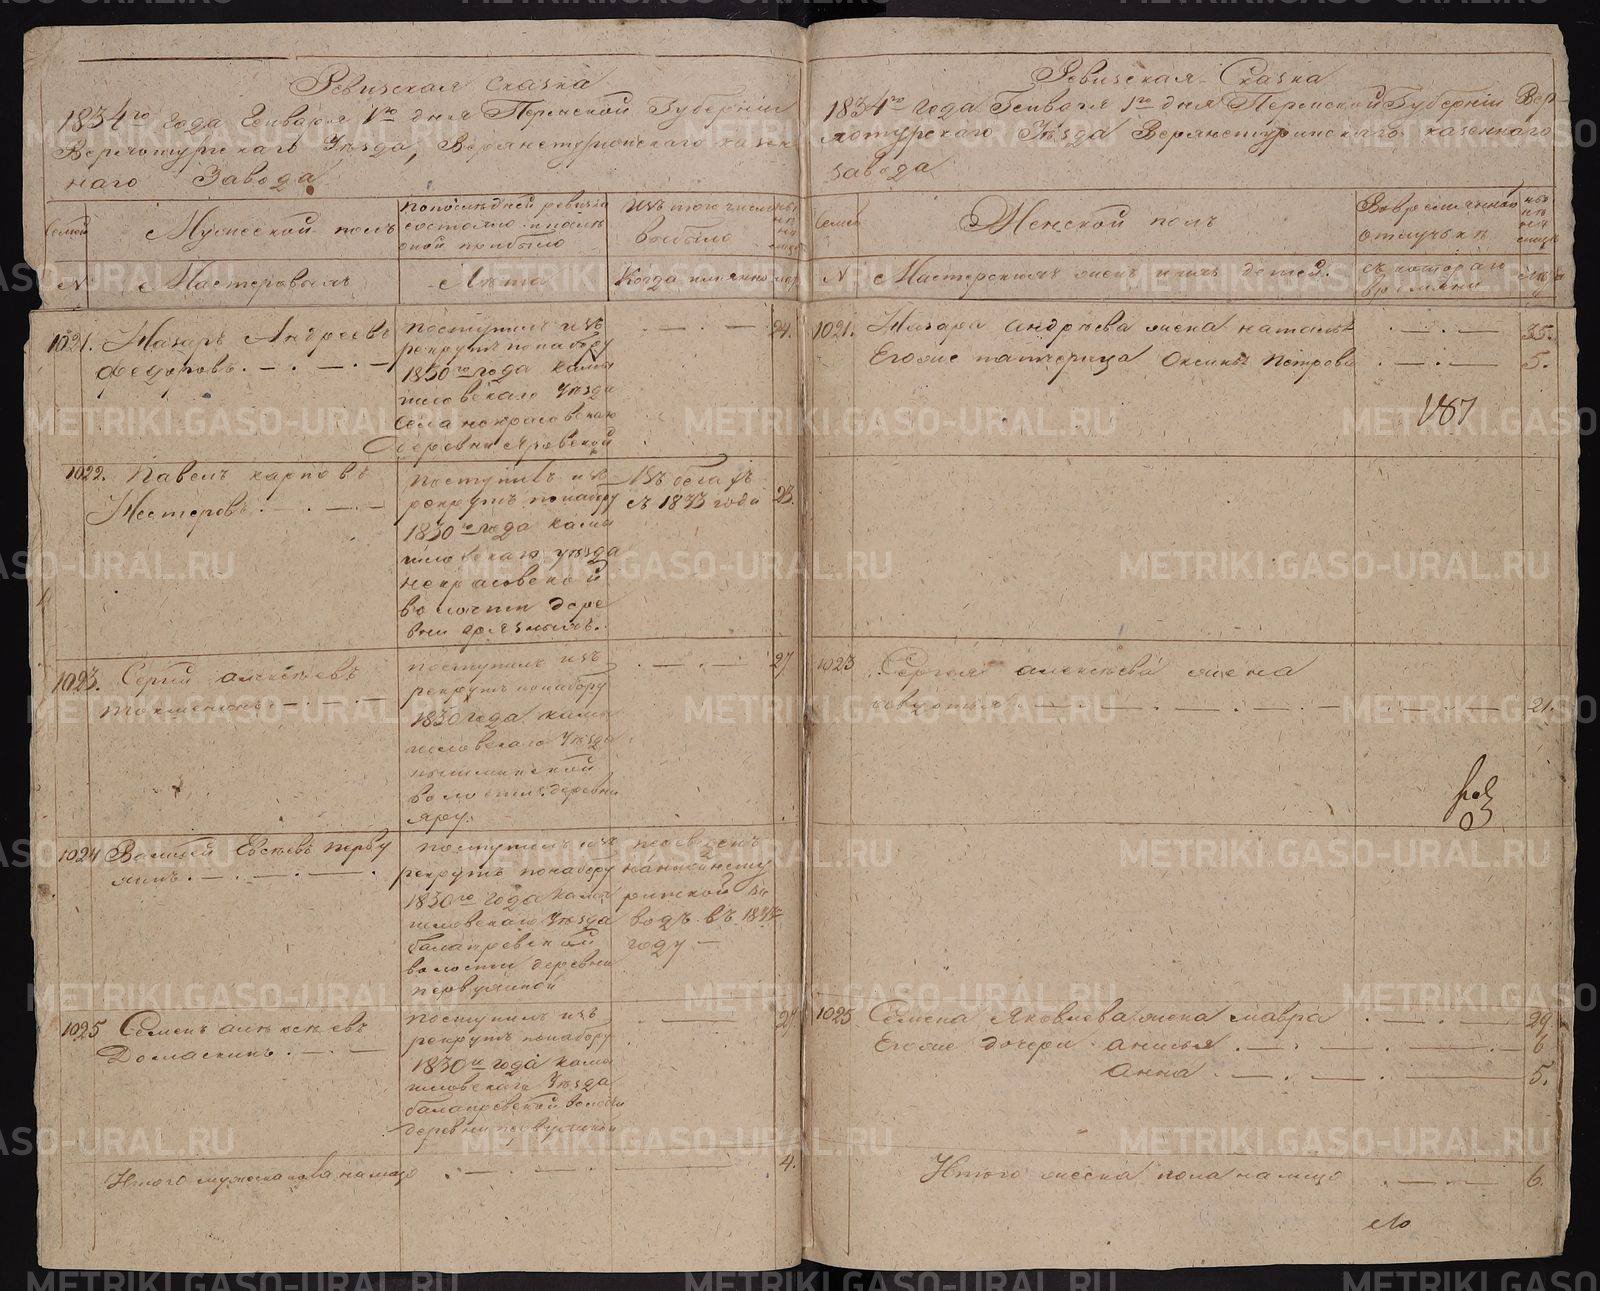 Ревизская сказка
1834го года Генваря 1го дня Пермской Губернии
Верхотурскаго Уѣзда, Верхнетуринскаго казен
наго Завода
Семей
Мужеской полъ
По последней ревизіи
состояло и после
оной прибыло
Изъ того числа
выбыло
№
Мастеровыхъ
Лѣта
Когда имянно
1021. Назаръ Андреевъ
Федоровъ
поступилъ изъ
рекрутъ по набору
1830го года Камы
шловскаго Уѣзда
села Некрасовскаго
деревни
24.
1022. Павелъ Карповъ
Нестеровъ
поступилъ изъ
рекрутъ по набору
1830го года Камы
шловскаго уѣзда
Некрасовской
волости дере
вни
Въ бегахъ
съ 1833 года
23.
1023. Сергій Алексѣевъ
поступилъ изъ
рекрутъ по набору
1830 года Камы
шловскаго Уѣзда
Пышминской
волости деревни
Яру.
27
1024 Василей Евсѣевъ Перву
хинъ
поступилъ изъ
рекрутъ по набору
1830го года Камы
шловскаго Уѣзда
Балаирской
волости деревни
Первухиной
переведенъ
на Нижнету
ринской за
водъ въ 1833
году
1025 Семенъ Алексѣевъ
Домаскинъ
поступилъ изъ
рекрутъ по набору
1830го года Камы
шловскаго Уѣзда
Балаирской волости
деревни Первухиной
Итого мужеска пола на лицо
4.
Ревизская Сказка
1834го года Генваря 1го дня Пермской Губерніи Вер
хотурскаго Уѣзда Верхнетуринскаго казеннаго
завода
Семей
Женской полъ
Во временной
отлучкѣ
№
Мастерскихъ женъ и ихъ детей.
съ котораго
времяни
1021. Назара Андрѣева жена Наталья 35.
Егоже падчерица Оксинья Петрова 5.
1023 Сергея Алексѣева жена
Авдотья 21.
1025 Семена Яковлева жена Мавра 29
Егоже дочери Анисья 6
Анна 5.
Итого женска пола на лицо 6.
METRIKI.GASO-URAL.RU